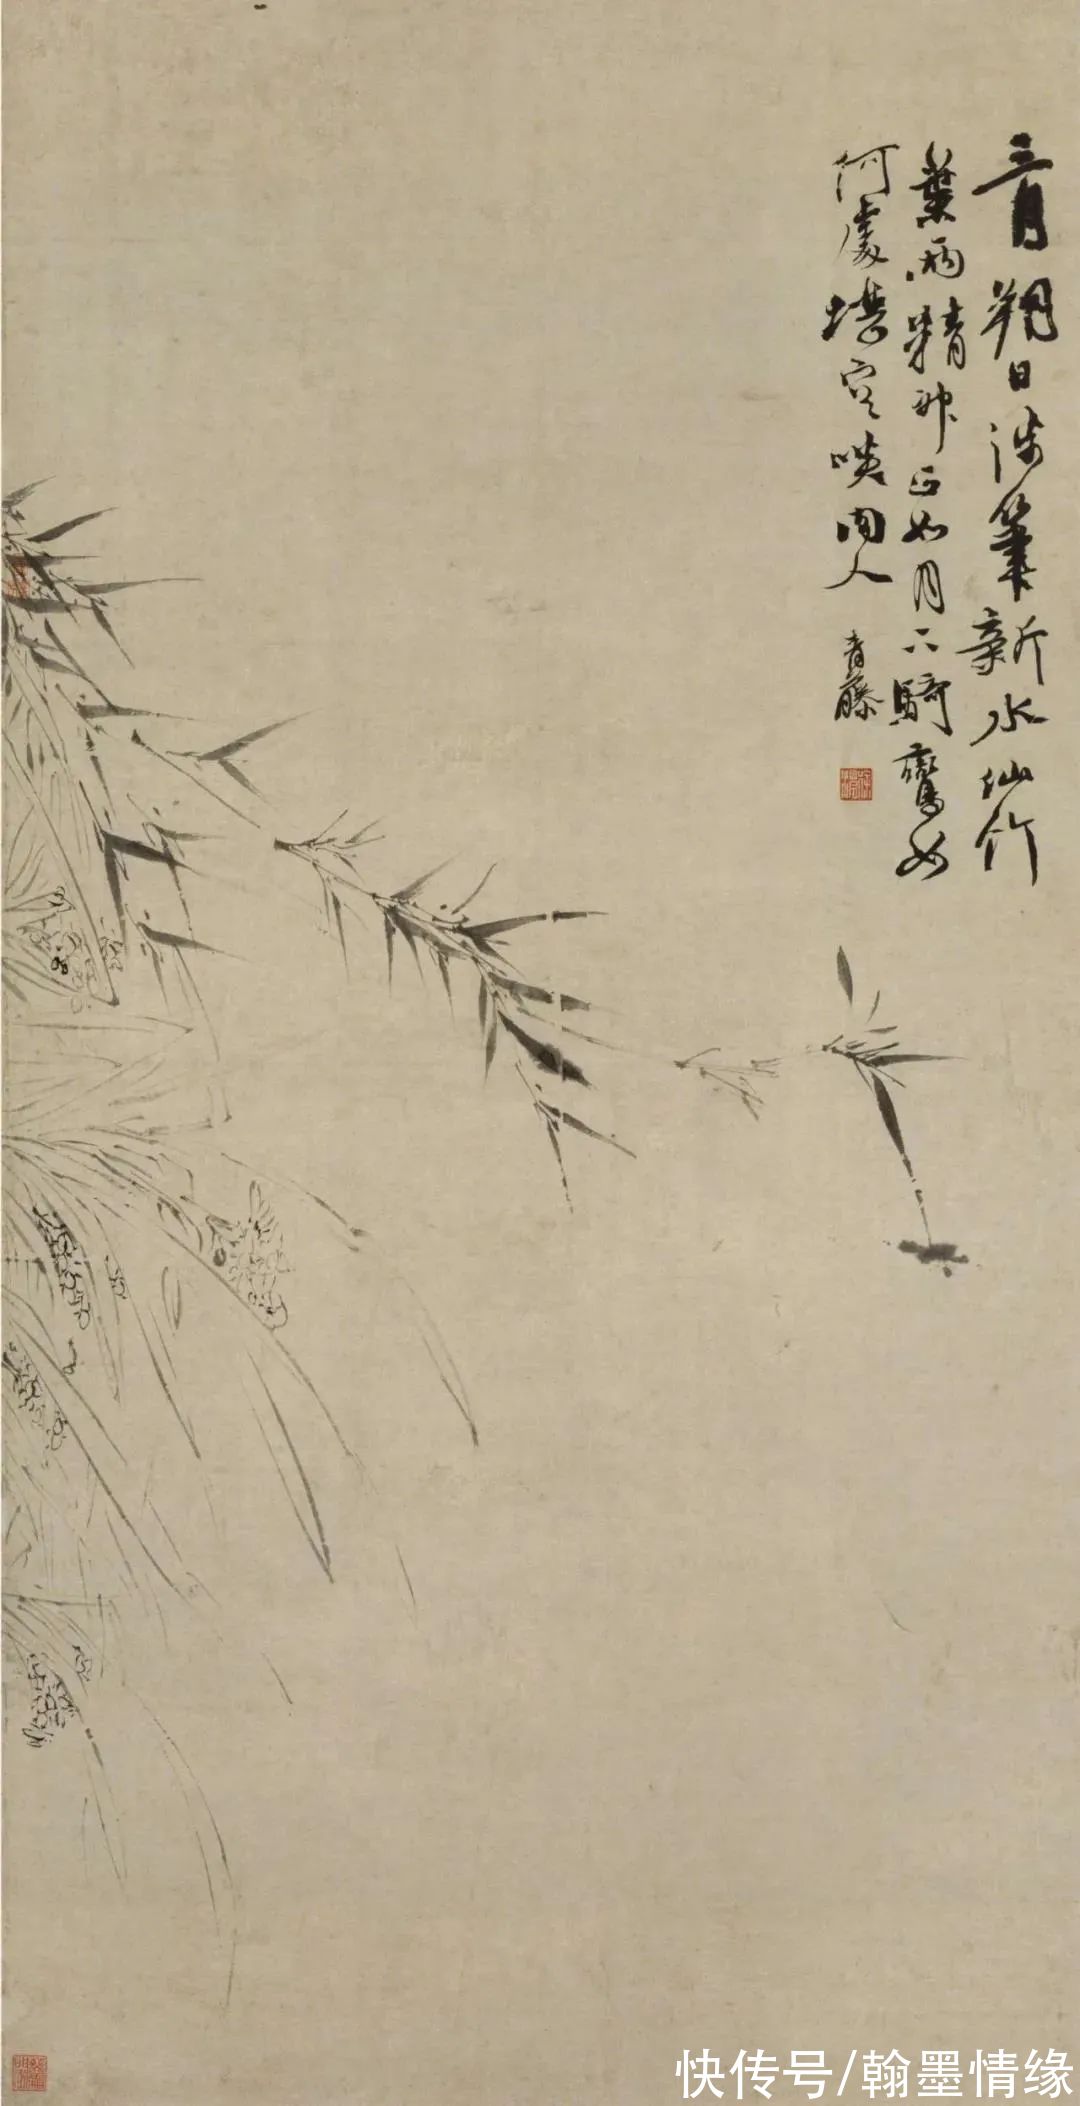 三月朔日涉筆新水仙竹
葉兩精神正如月下騎鸞女
何處堪容啖肉人
青藤
快传号/翰墨情缘